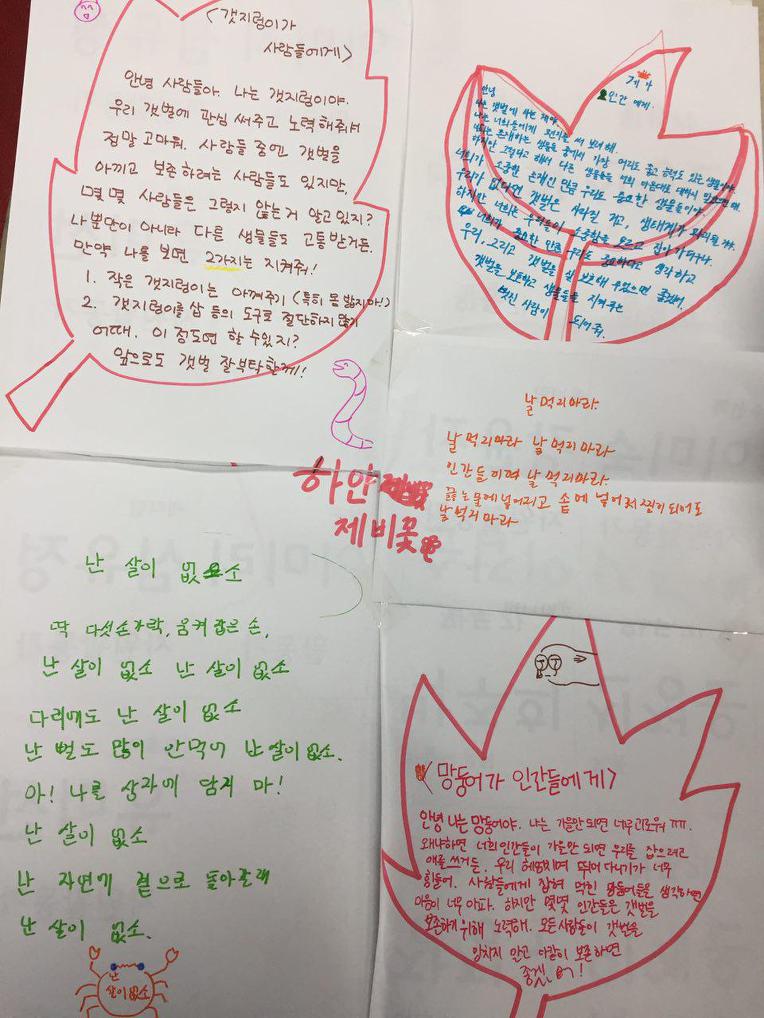 <갯지렁이가
사람들에게>
안녕 사람들아. 나는 갯지렁이야.
우리 갯벌에 관심 써주고 노력해줘서
정말 고마워. 사람들 중엔 갯벌을
아끼고 보존하려는 사람들도 있지만,
몇몇 사람들은 그렇지 않는거 알고있지?
나뿐만이 아니라 다른 생물들도 고통받거든.
만약 나를 보면 2가지는 지켜줘!
1. 작은 갯지렁이는 아껴주기 (특히 꼭 밟지마!)
2. 갯지렁이를 삽 등의 도구로 절단하지 않기
어때. 이 정도면 할 수 있지?
앞으로도 갯벌 잘부탁할게!
게가
인간에게
안녕
나는 갯벌에 사는 게야.
나는 너희들에게 편지를 써 보려 해.
너희가 소중한 존재인 만큼 우리도 중요한 생물들이야.
우리가 없다면 갯벌은 사라질 거고, 생태계가 파괴될 거야.
하지만 너희는 우리들의 소중함을 모르고 잡아가더구나.
너희가 중요한 만큼 우리도 중요하다고 생각하고
우리, 그리고 갯벌을 잘 보호해 주었으면 좋겠어.
갯벌을 보호하고 생물들을 지켜주는
멋진 사람이 되어줘.
날 먹지마라.
날 먹지마라 날 먹지마라
인간들이여 날 먹지마라
끓는물에 넣어지고 솥에 넣어져 찜이 되어도
날 먹지마라
하얀
제비꽃
난 살이 없소
딱 다섯손가락, 움켜잡은 손,
난 살이 없소 난 살이 없소
다리에도 난 살이 없소
난 뻘도 많이 안먹어 난 살이 없소.
아! 나를 상자에 담지 마!
난 살이 없소
난 자연의 곁으로 돌아갈래
난 살이 없소.
난
살이없소
<망둥어가 인간들에게>
안녕 나는 망둥어야. 나는 가을만 되면 너무 괴로워 ㅠㅠ.
왜냐하면 너희 인간들이 가을만 되면 우리를 잡으려고
애를 쓰거든. 우리 헤엄치며 뛰어다니기가 너무
힘들어. 사람들에게 잡혀 먹힌 망둥어들을 생각하면
마음이 너무 아파. 하지만 몇몇 인간들은 갯벌을
보존하기 위해 노력해. 모든사람들이 갯벌을
망치지 않고 마땅이 보존하면
좋겠어!